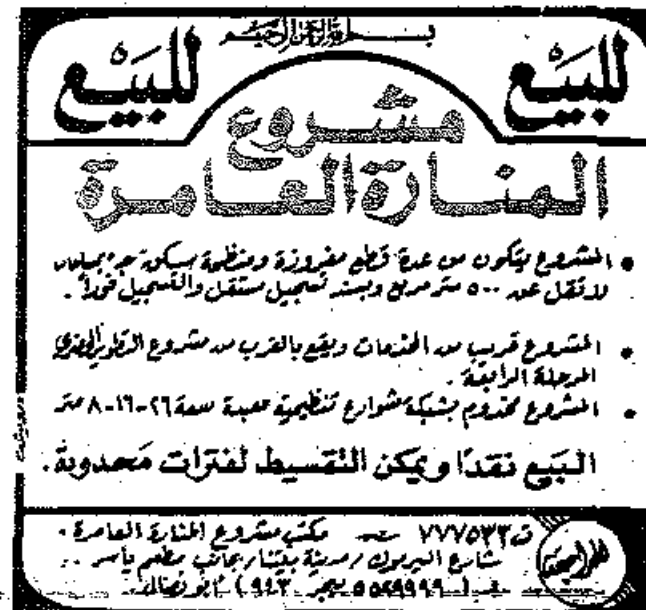 بسم الله الرحمن الرحيم
للبيع
للبيع
مشروع
المنارة العامرة
• المشروع يتكون من عدة قطع مفروزة ومنظمة بسكن
لا تقل عن ٥٠٠ متر مربع وبسند تسجيل مستقل والتسجيل فوراً .
• المشروع قريب من الخدمات ويقع بالقرب من مشروع التطوير الحضري
المرحلة الرابعة .
• المشروع مخدوم بشبكة شوارع تنظيمية معبدة سعة ٢٦-١٦-٨ متر
البيع نقداً ويمكن التقسيط لفترات محدودة .
للمراجعة
ت ٧٧٧٥٣٣ مكتب مشروع المنارة العامرة .
شارع اليرموك / مدينة بجانب مطعم ياسر ..
بيجر ٩٤٣) أبو نضال .